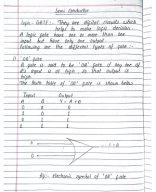 Semi Conductor
Logic Gates :- They are digital circuits which
helps to make logic decision.
A logic gate have one or more than one
input but have only one output
Following are the different types of gate :-
"OR" gate
A gate is said to be "OR" gate if any one of
its input is at high so that output is
high.
The truth table of "OR" gate is shown below
Input Output
A B Y = A + B
0 0 0
0 1 1
1 0 1
1 1 1
fig:- electronic symbol of "OR" gate